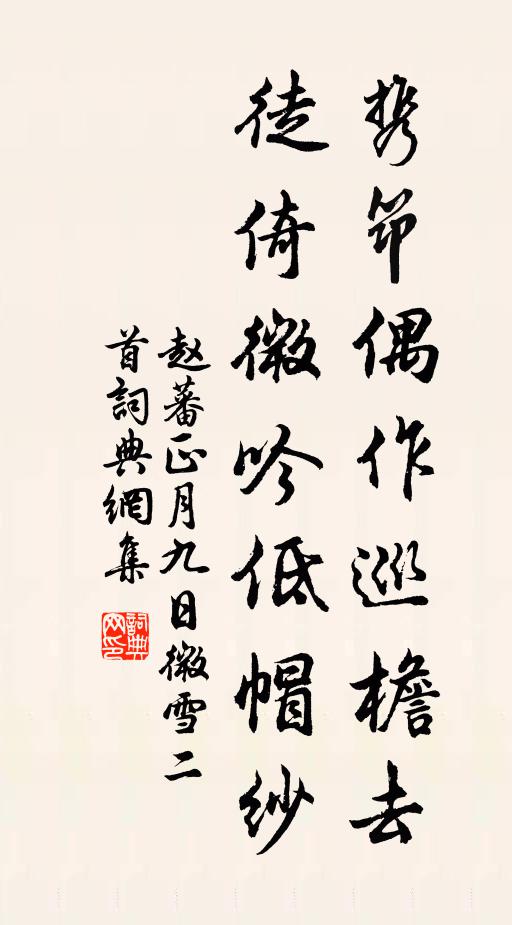 携筇偶作巡檐去
徒倚微吟低帽纱
赵蕃正月九日微雪二
首詞典網集
詞典网印